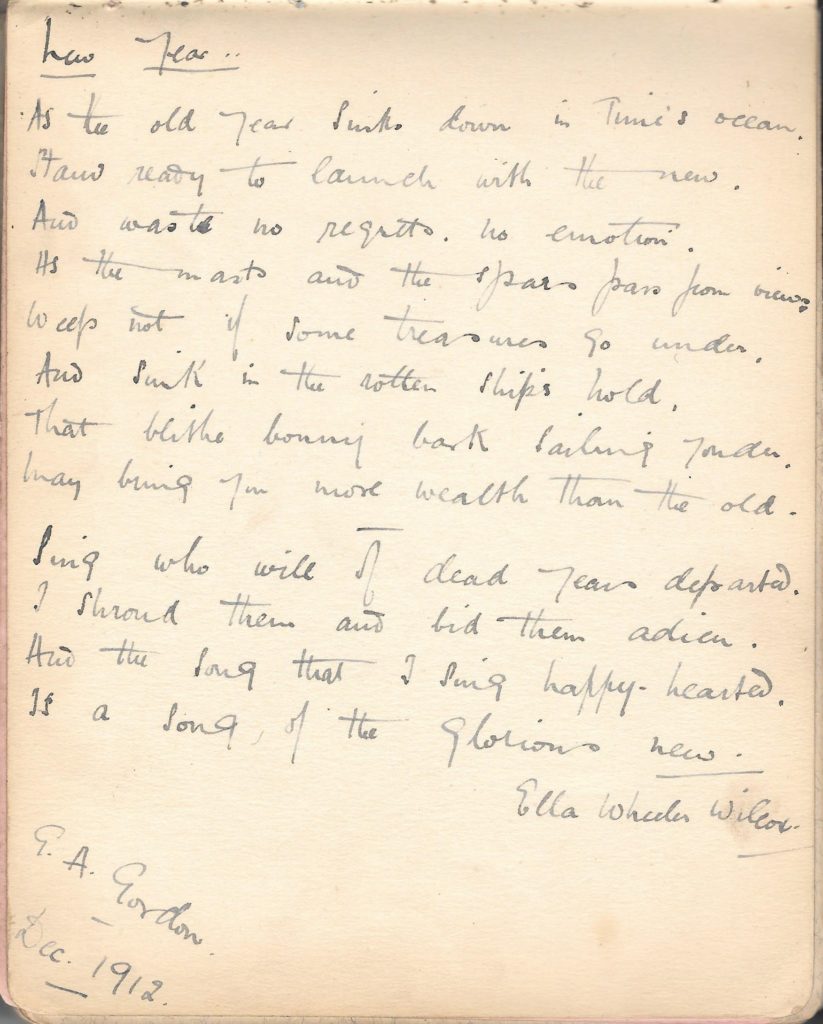 New Year..
As the old year sinks down in Time's ocean,
Stand ready to launch with the new.
And waste no regrets. no emotion.
As the masts and the spars pass from view,
Weep not if some treasures go under,
And sink in the rotten ship's hold,
That blithe bonny bark sailing yonder,
May bring you more wealth than the old.
Sing who will of dead years departed.
I shroud them and bid them adieu.
And the song that I sing happy-hearted,
Is a song, of the glorious new.
Ella Wheeler Wilcox.
A. Gordon.
Dec. 1912.